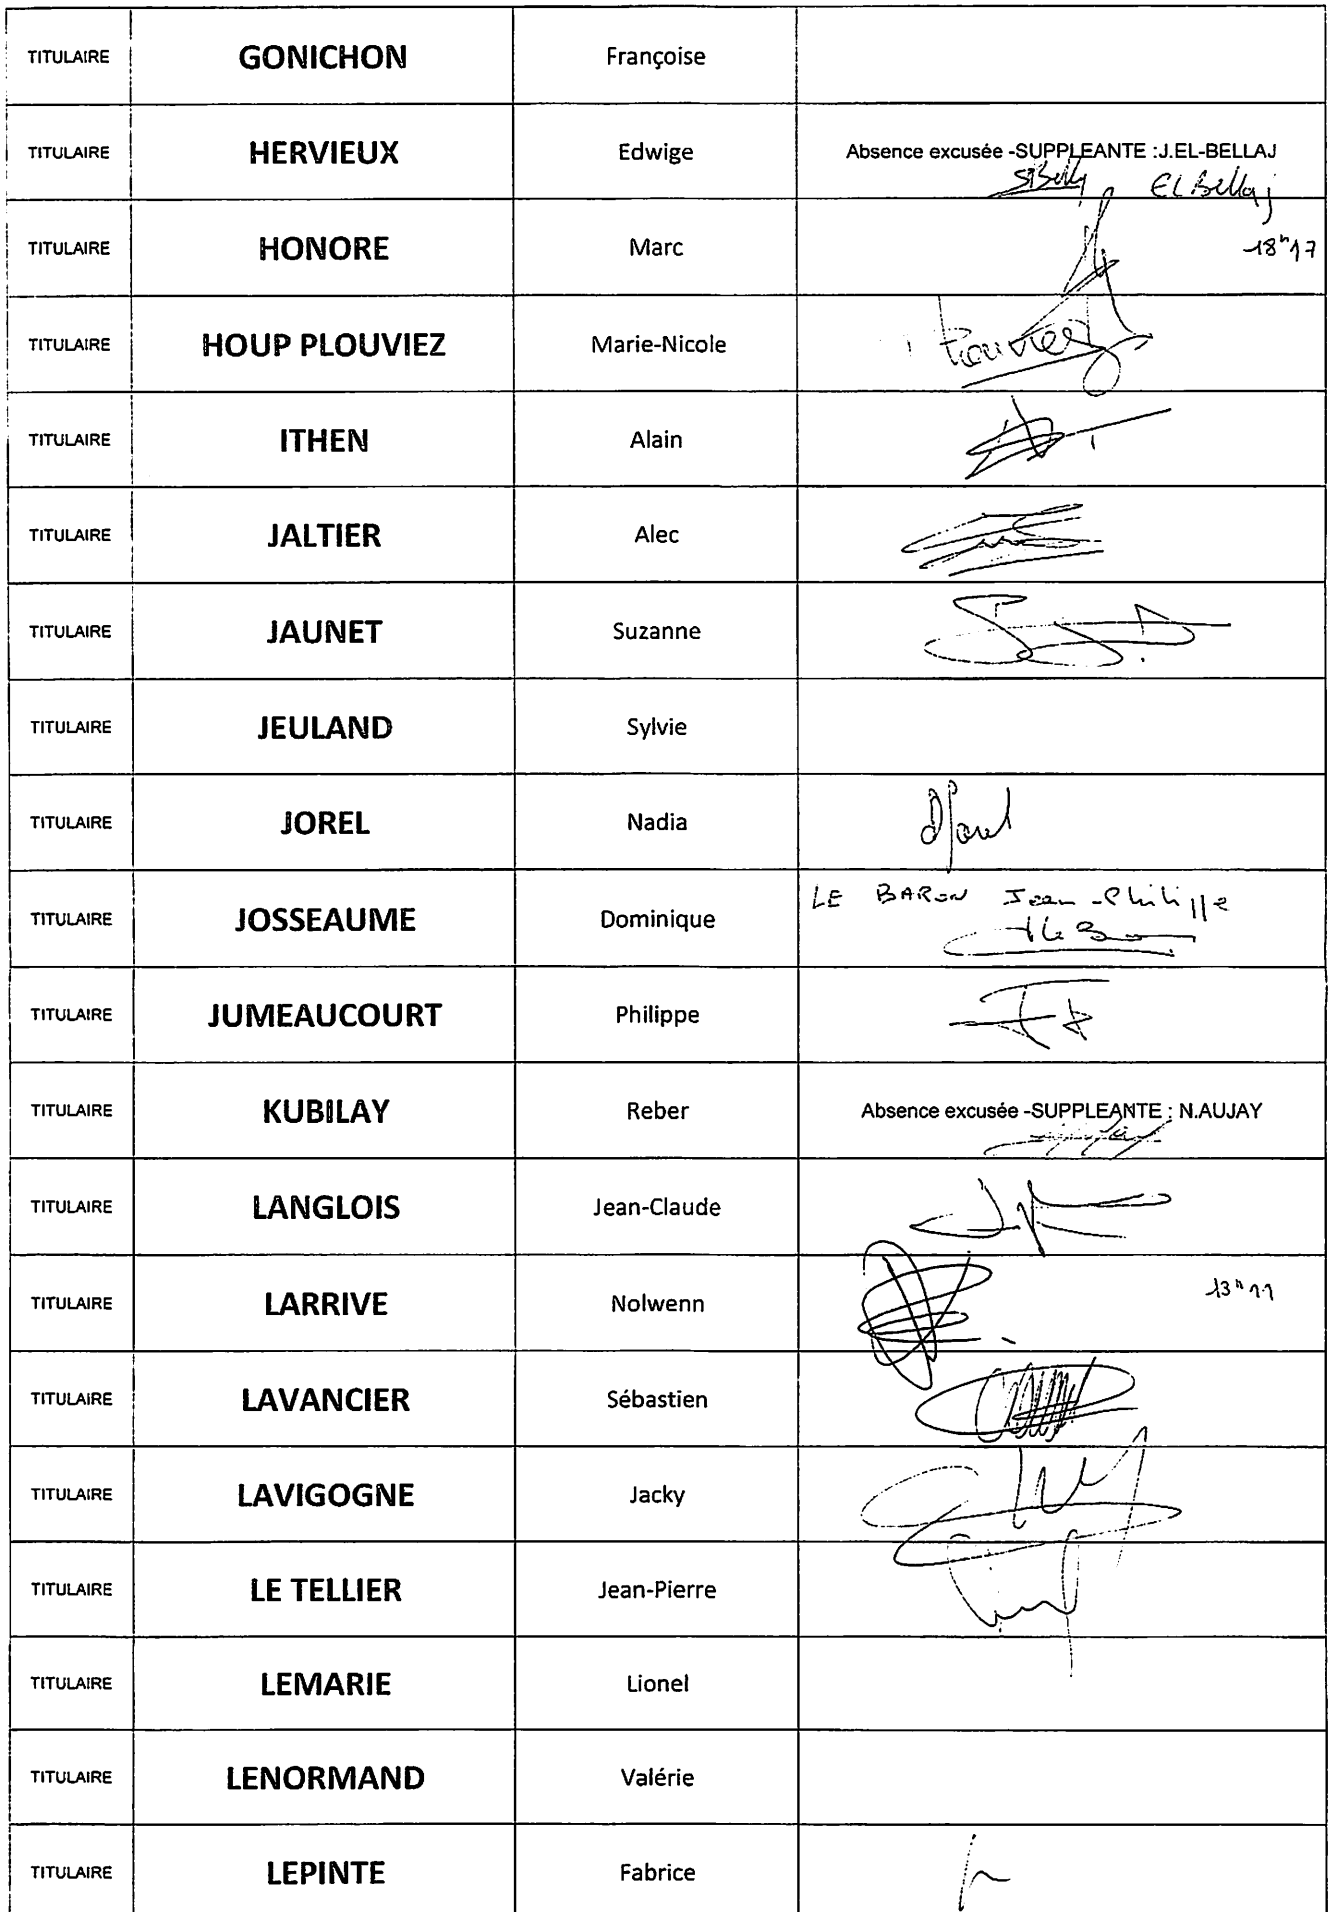 TITULAIRE GONICHON Françoise
TITULAIRE HERVIEUX Edwige Absence excusée -SUPPLEANTE :J.EL-BELLAJ
EL Bellaj
TITULAIRE HONORE Marc 18h17
TITULAIRE HOUP PLOUVIEZ Marie-Nicole
TITULAIRE ITHEN Alain
TITULAIRE JALTIER Alec
TITULAIRE JAUNET Suzanne
TITULAIRE JEULAND Sylvie
TITULAIRE JOREL Nadia
LE BARON Jean-Philippe
TITULAIRE JOSSEAUME Dominique
TITULAIRE JUMEAUCOURT Philippe
TITULAIRE KUBILAY Reber Absence excusée -SUPPLEANTE : N.AUJAY
TITULAIRE LANGLOIS Jean-Claude
TITULAIRE LARRIVE Nolwenn
TITULAIRE LAVANCIER Sébastien
TITULAIRE LAVIGOGNE Jacky
TITULAIRE LE TELLIER Jean-Pierre
TITULAIRE LEMARIE Lionel
TITULAIRE LENORMAND Valérie
TITULAIRE LEPINTE Fabrice